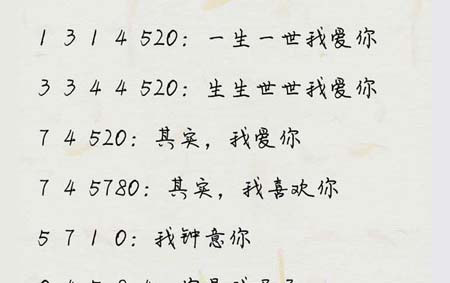 1 3 1 4 520：一生一世我爱你
3 3 4 4 520：生生世世我爱你
7 4 520：其实，我爱你
7 4 5780：其实，我喜欢你
5 7 1 0：我钟意你